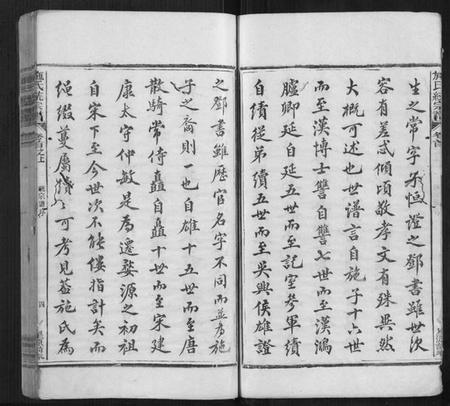 生之常字子恒證之鄧書雖世次
容有差忒傾頃敬孝文有殊異然
大概可述也世譜言自施子十六世
而至漢博士讐自讐七世而至漢鴻
臚卿延自延五世而至記室參軍績
自績從弟續五世而至吳興侯雄證
之鄧書雖歷官名字不同而並為施
子之裔則一也自雄十五世而至唐
散騎常侍矗自矗十世而至宋建
康太守仲敏是為遷婺源之初祖
自宋下至今世次不能僂指計矣而
綿綴蔓屬 可考見蓋施氏為
施氏 宗譜
卷首
四